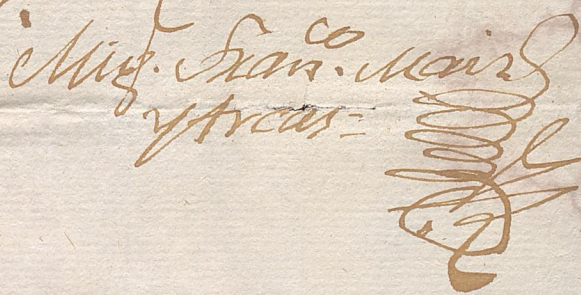 Mig. Franco. Maiz
y Arcas=